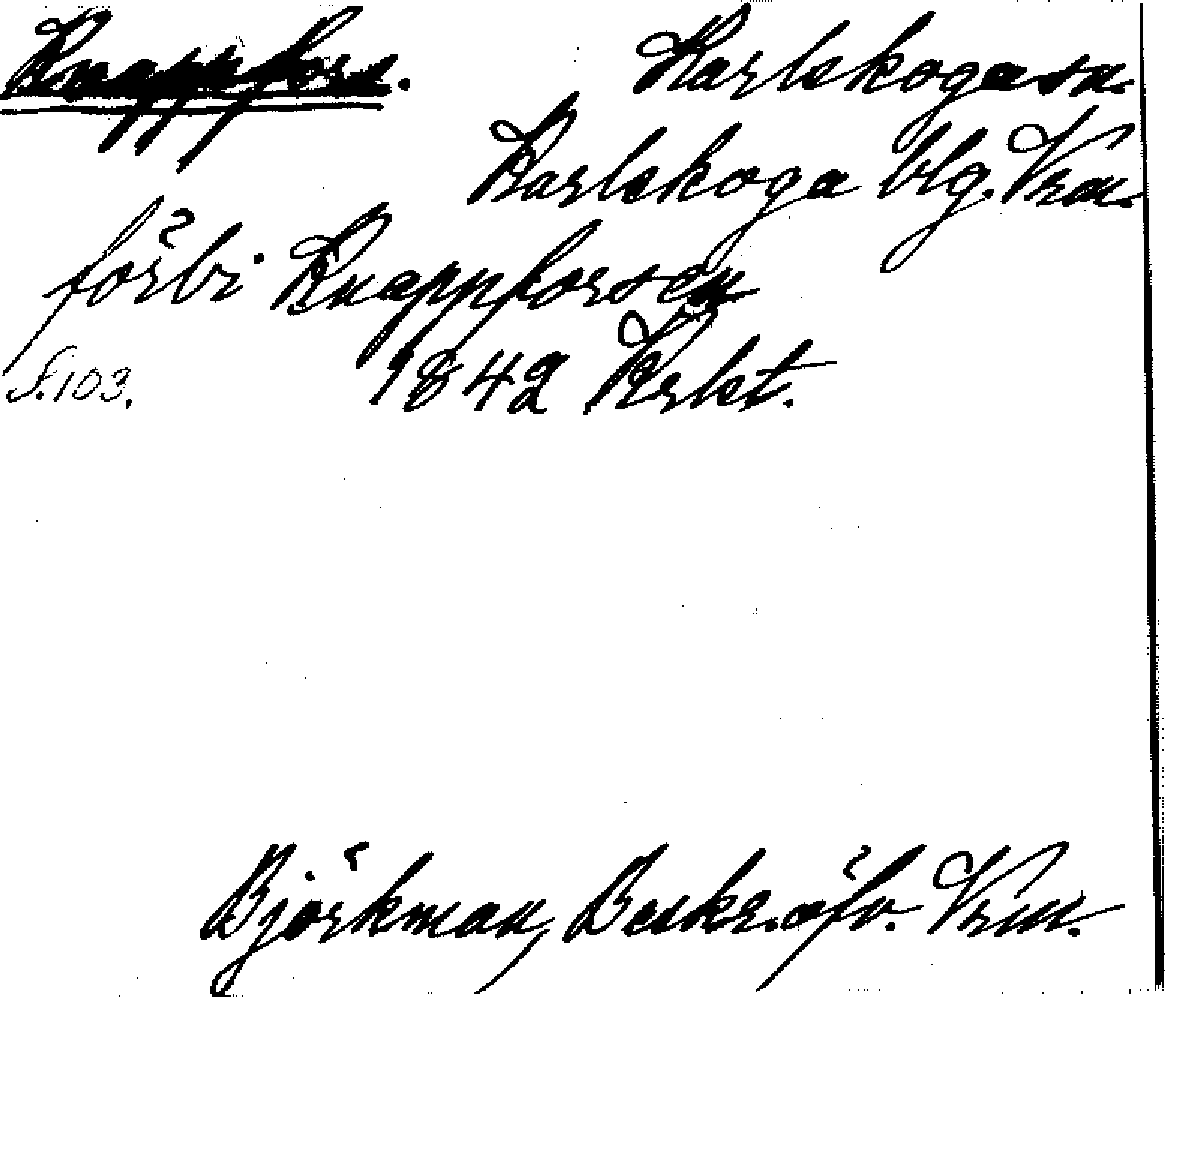 Knappfors. Karlskoga sn.
Karlskoga blg. Vrm.
förbi Knappforsen
S. 103. 1842 Krkt.
Björkman, Beskr. öfv. Vrm.